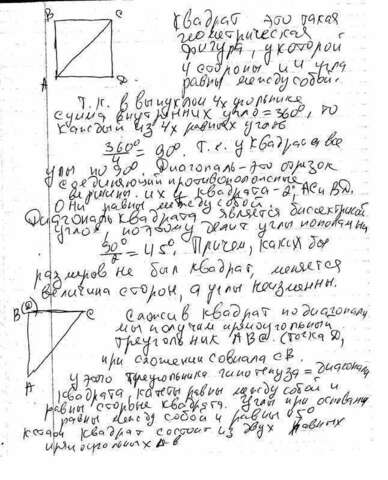 B C
Квадрат это такая
геометрическая
фигура, у которой
4 стороны и 4 угла
A D
равны между собой.
Т.к. в выпуклом 4х угольнике
сумма внутренних углов = 360°, то
каждый из 4х равных углов
360°/4 = 90°. Т.е. у квадрата все
углы по 90°. Диагональ - это отрезок
соединяющий противоположные
вершины. их у квадрата - 2; AC и BD.
Они равны между собой
Диагональ квадрата является биссектрисой
углов, поэтому делит углы пополам на
90°/2 = 45°. Причем, каких бы
размеров не был квадрат, меняется
величина сторон, а углы неизменны.
B(D) C
Сложив квадрат по диагонали
мы получим прямоугольный
треугольник ABC. (точка D,
при сложении совпала с B.
A
У этого треугольника гипотенуза = диагонали
квадрата, катеты равны между собой и
равны стороне квадрата. Углы при основании
равны между собой и равны 45°
кстати квадрат состоит из двух равных
прямоугольных